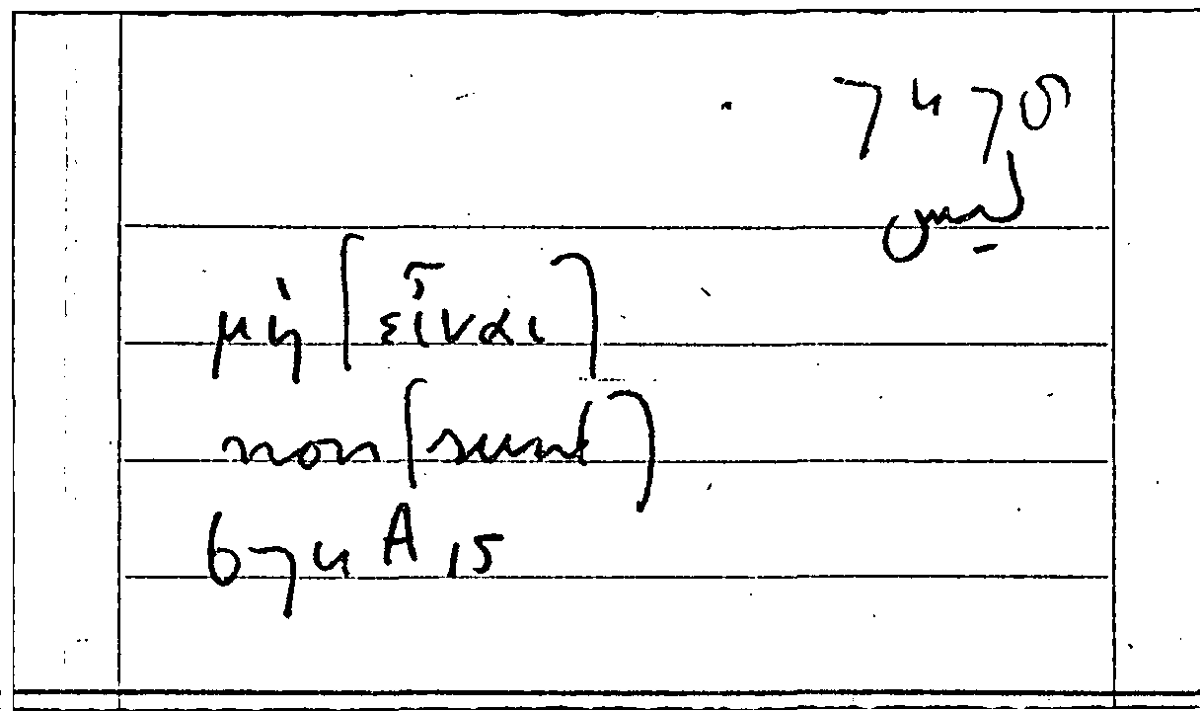 ليس
μὴ [εἶναι]
non [sunt]
674 A 15